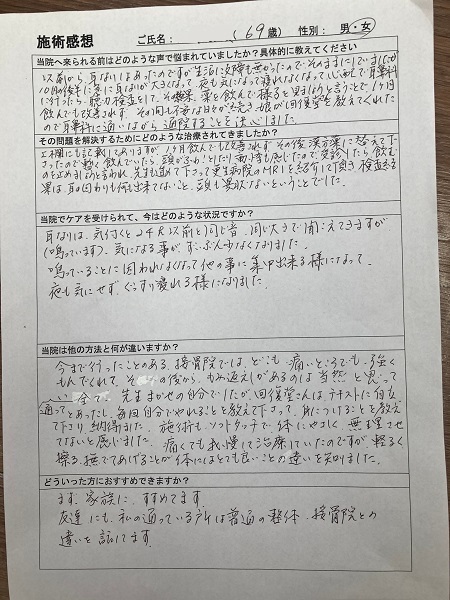 施術感想 ご氏名： (69歳) 性別： 男・女
当院へ来られる前はどのような声で悩まれていましたか？具体的に教えてください
以前から耳なりはあったのですが生活に支障も無かったのでそのままにしていましたが
10月後半に急に耳なりが大きくなって夜も気になって寝れなくなって心配で耳鼻科
に行ったら、聴力検査をして、その結果、薬を飲んで様子を見ましょうと言うことで1ヶ月
飲んでも改善されず、その間も不安な日々が続き娘が回復堂を教えてくれた
ので耳鼻科に通いながら通院することを決心しました。
その問題を解決するためにどのような治療されてきましたか？
上欄にも記載してありますが、1ヶ月飲んでも改善されず その後漢方薬に替えて下
さったので暫く飲んでいたら、頭がふわっとしたり
のを止めましょうと言われ、先生も進めて下さって更生病院のMRIを紹介して頂き検査 結
果は、耳の回りも何も出てないこと、頭も異状ないということでした。
当院でケアを受けられて、今はどのような状況ですか？
耳なりは、気付くと24H以前と同じ音、同じ大きで聞こえてきますが
(鳴っています)、気になる事が、ずいぶん少なくなりました。
鳴っていることに囚われなくなって他の事に集中出来る様になって、
夜も気にせず、ぐっすり寝れる様になりました。
当院は他の方法と何が違いますか？
今まで行ったことのある、接骨院では、どこも痛いところでも、強く
もんでくれて、その後から、もみ返しがあるのは当然と思って
い 今で、先生まかせの自分でしたが、回復堂さんは、テキストに自友
通ってとあったし、毎回自分でやれることを教えて下さって、身につけることを教え
て下さり、納得ました。施術も、ソフトタッチで体にやさしく無理させ
てないと感じました。痛くても我慢して治療していたのですが軽く
擦る、撫でてあげることが体にはとても良いことの違いを知りました。
どういった方におすすめできますか？
まず、家族に、すすめてます。
友達にも、私の通っている所は普通の整体、接骨院との
違いを話してます。